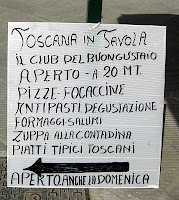 TOSCANA IN TAVOLA
IL CLUB DEL BUONGUSTAIO
APERTO - A 20 MT.
PIZZE-FOCACCINE
ANTIPASTI, DEGUSTAZIONE
FORMAGGI-SALUMI
ZUPPA ALLA CONTADINA
PIATTI TIPICI TOSCANI
APERTO ANCHE LA DOMENICA